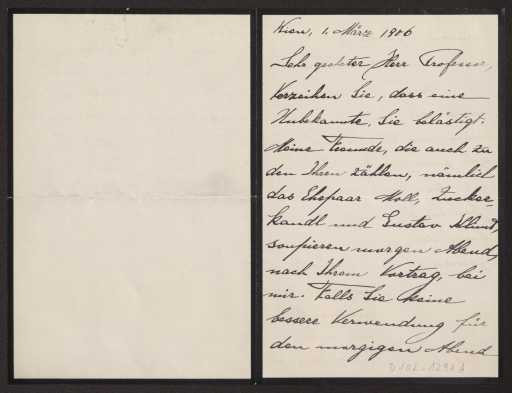 Wien, 1. März 1906
Sehr geehrter Herr Professor,
Verzeihen Sie, dass eine
Unbekannte, Sie belästigt.
Meine Freunde, die auch zu
den Ihren zählen, nämlich
das Ehepaar Moll, Zucker-
kandl und Gustav Klimt,
soupieren morgen Abend,
nach Ihrem Vortrag, bei
mir. Falls Sie keine
bessere Verwendung für
den morgigen Abend